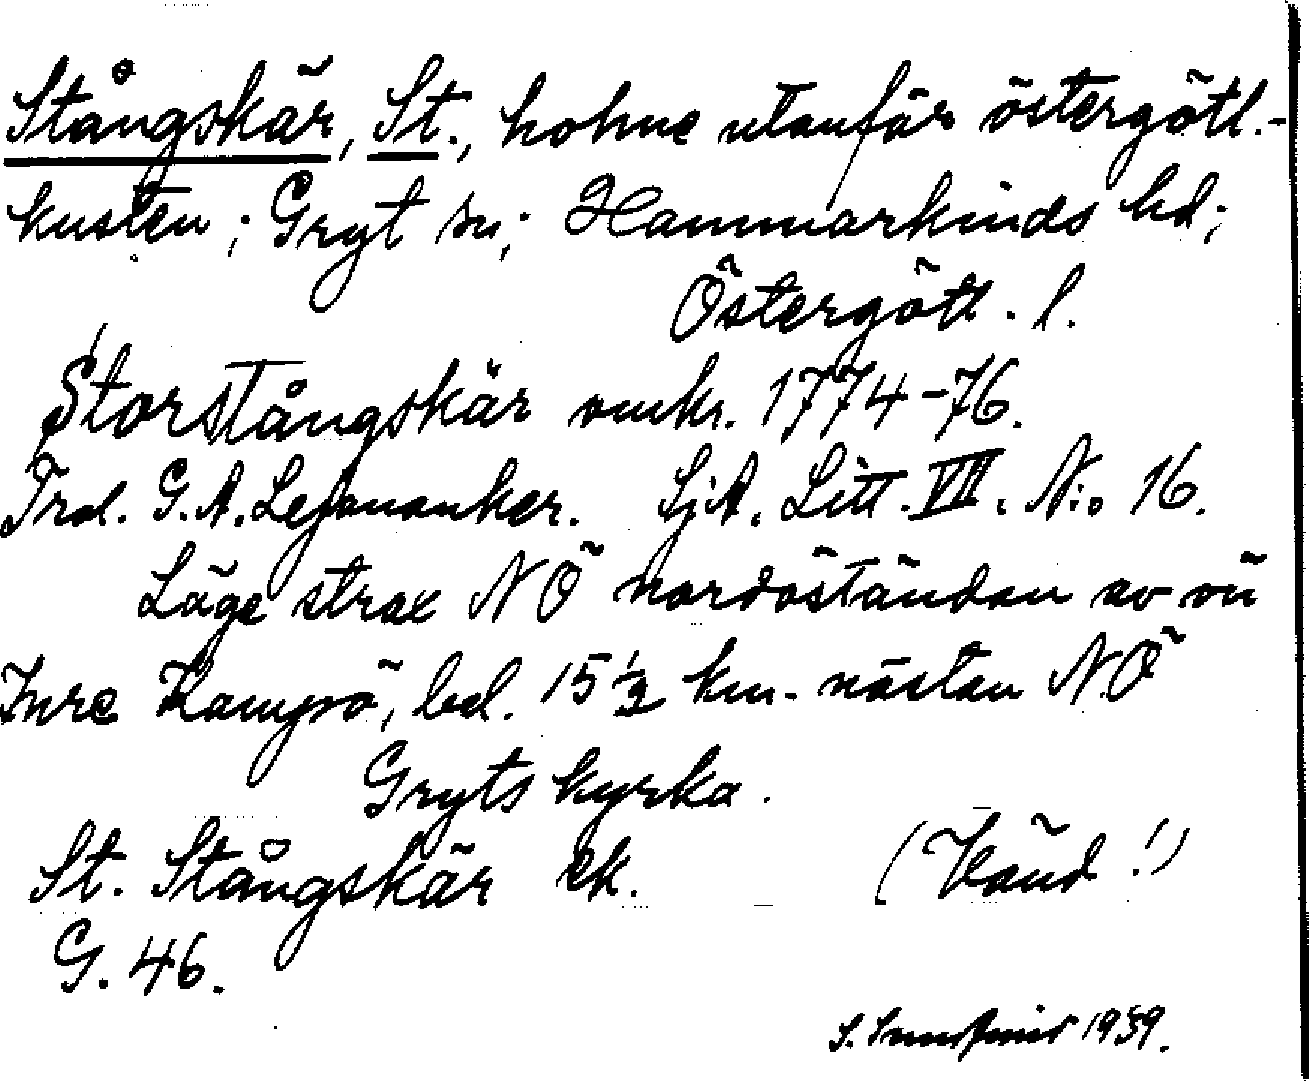 Stångskär, St., holme utanför östergötl.-
kusten; Gryt sn; Hammarkinds hd;
Östergötl. l.
Storstångskär omkr. 1774-76.
Frdl. G. A. Lejonanker. SjA. Litt. VIII. N:o 16.
Läge strax NÖ nordöständan av ön
Inre Kampö, bel. 15 1/2 km. nästan NÖ
Gryts kyrka.
St. Stångskär ek. (Vänd!)
G. 46.
S. 1939.